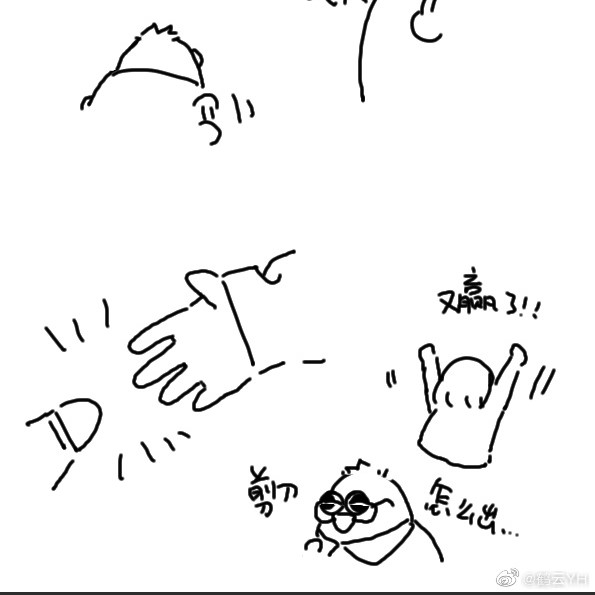 又赢了!!
剪刀
怎么出...
@鹤云YH